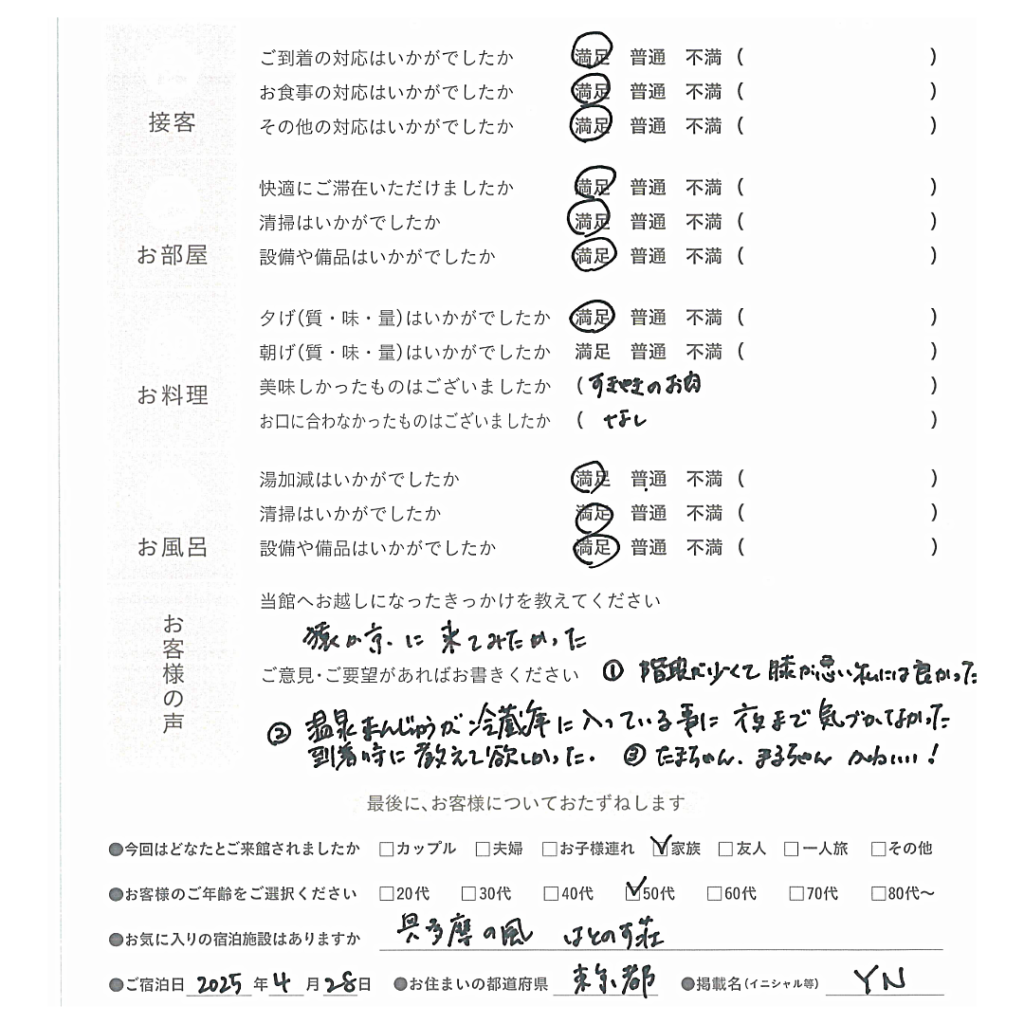 接客
ご到着の対応はいかがでしたか 満足 普通 不満 ( )
お食事の対応はいかがでしたか 満足 普通 不満 ( )
その他の対応はいかがでしたか 満足 普通 不満 ( )
お部屋
快適にご滞在いただけましたか 満足 普通 不満 ( )
清掃はいかがでしたか 満足 普通 不満 ( )
設備や備品はいかがでしたか 満足 普通 不満 ( )
お料理
夕げ(質・味・量)はいかがでしたか 満足 普通 不満 ( )
朝げ(質・味・量)はいかがでしたか 満足 普通 不満 ( )
美味しかったものはございましたか ( すきやきのお肉 )
お口に合わなかったものはございましたか ( なし )
お風呂
湯加減はいかがでしたか 満足 普通 不満 ( )
清掃はいかがでしたか 満足 普通 不満 ( )
設備や備品はいかがでしたか 満足 普通 不満 ( )
お客様の声
当館へお越しになったきっかけを教えてください
猿ヶ京に来てみたかった
ご意見・ご要望があればお書きください ① 階段が少くて膝が悪い私には良かった
② 温泉まんじゅうが冷蔵庫に入っている事に夜まで気づかなかった
到着時に教えて欲しかった. ③ たまちゃん、まるちゃん かわいい!
最後に、お客様についておたずねします
●今回はどなたとご来館されましたか □カップル □夫婦 □お子様連れ ☑家族 □友人 □一人旅 □その他
●お客様のご年齢をご選択ください □20代 □30代 □40代 ☑50代 □60代 □70代 □80代〜
●お気に入りの宿泊施設はありますか 奥多摩の風 はとのす荘
●ご宿泊日 2025 年 4 月 28 日 ●お住まいの都道府県 東京都 ●掲載名(イニシャル等) YN